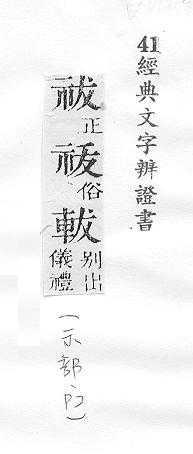 41經典文字辨證書
祓正袚俗軷別出儀禮
(示部)